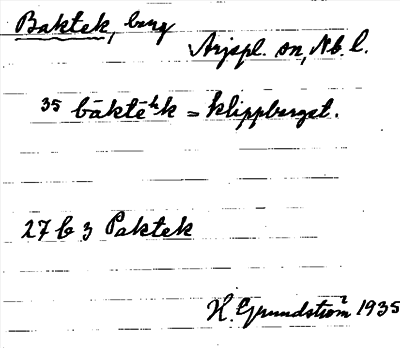 Baktek, berg
Arjepl. sn, Nb. l.
35 bāktē<sup>h</sup>k = klippberget.
27 b 3 Paktek
H. Grundström 1935